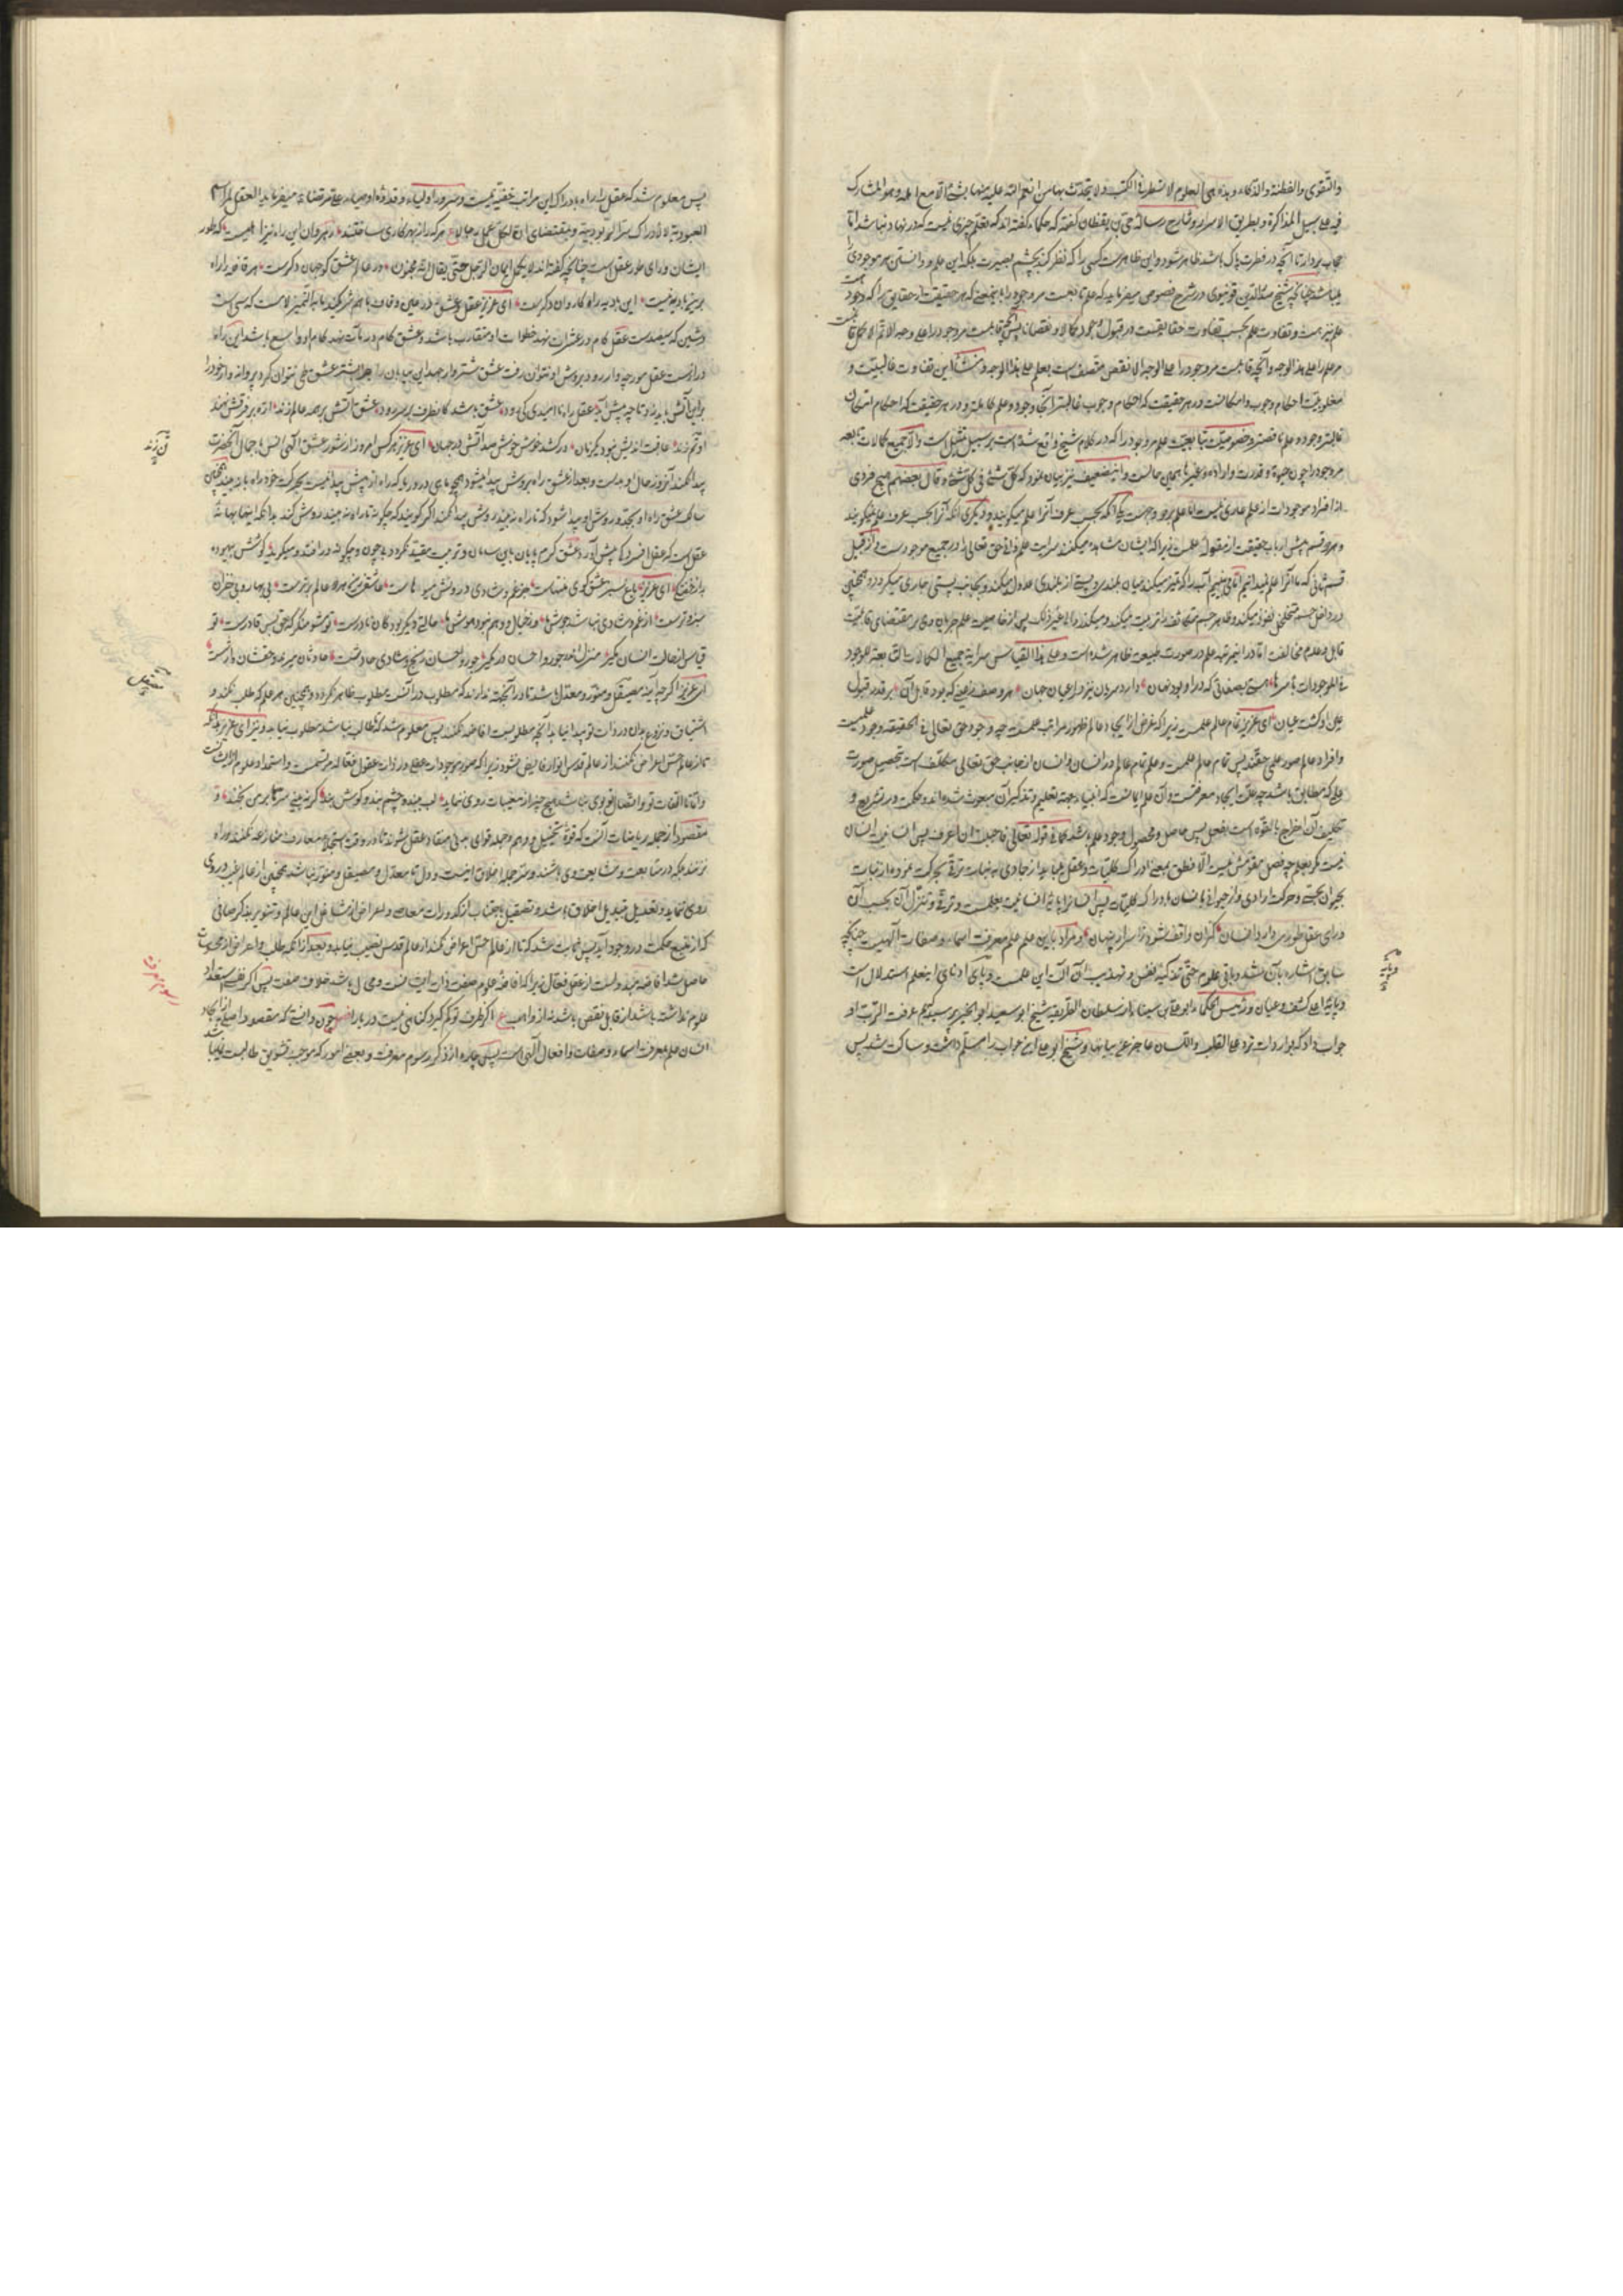 والتقوی والفطنة والذکاء وهذه هی العلوم لا تسطر فی الکتب ولا یتحدث بها من انعم الله علیه منها بشئ الا مع اهله وهو المشارک
فیه علی سبیل المذاکرة و بطریق الاسرار و شارح رساله حی بن یقظان گفته که حکماء گفته‌اند که تعلم چیزی نیست که در نهاد نباشد اما
حجاب بردار تا آنچه در فطرت پاک باشد ظاهر شود و این ظاهرست کسی را که نظر کند بچشم بصیرت بلکه این علم و دانستن هر موجودی را
شیخ صدرالدین قونیوی در شرح فصوص میفرماید که علم تابعست مر وجود را باینمعنی که هر حقیقت از حقایق را که وجود
علم نیز هست و تفاوت علم بحسب تفاوت حقایقست در قبول وجود کمالا و نقصانا پس آنچه قابلست مر وجود را علی وجه الاتم الاکمل
مر علم را علی هذا الوجه و آنچه قابلست مر وجود را علی الوجه الانقص متصف است بعلم علی هذا الوجه و منشأ این تفاوت غالبیت و
مغلوبیت احکام وجوب و امکانست در هر حقیقت که احکام وجوب غالبتر آنجا وجود و علم کاملتر و در هر حقیقت که احکام امکان
غالبتر وجود و علم ناقصتر و خصوصیت تابعیت علم مر وجود را که در کلام شیخ واقع شده است بر سبیل تمثیل است والا جمیع کمالات تابعه
مر وجود را چون حیوة و قدرت و اراده و غیرها همین حالست و این ضعیف نیز بیان نمود که کل شئ فی کل شئ و قال بعضهم هیچ فردی
از افراد موجودات از علم عاری نیست اما علم بر دو وجهست یکی آنکه بحسب عرف آنرا علم میگویند و دیگری آنکه آنرا بحسب عرف علم نمیگویند
و هر دو قسم پیش ارباب حقیقت از مقوله علمست زیرا که ایشان مشاهده میکنند سرایت علم ذاتی حق تعالی را در جمیع موجودات و از قبیل
قسم ثانی که ما آنرا علم نمیدانیم اما می‌بینیم آب را که تمیز میکند میان بلندی و پستی از بلندی عدول میکند و بجانب پستی جاری میگردد و همچنین
در داخل جسم متخلخل نفوذ میکند و ظاهر جسم متکاثف را تربیت میکند و میگذرد الی غیر ذلک پس از خاصیت علم جریان وی بر مقتضای قابلیت
قابل و عدم مخالفت اما در این مرتبه علم در صورت طبیعت ظاهر شده است و علی هذا القیاس سرایة جمیع الکمالات التابعة للوجود
فی الموجودات باسرها هستی بصفاتی که در او بود نهان دارد سریان نیز در اعیان جهان هر وصف ز عینی که بود قابل آن بر قدر قبول
عین او گشت عیان ای عزیز تمام عالم علمست زیرا که غرض از ایجاد عالم ظهور مراتب علمست چه وجود حق تعالی فی الحقیقه وجود علمست
و افراد عالم صور علمی حقند پس تمام عالم علمست و علم تمام عالم در انسان و انسان از جانب حق تعالی مکلف است بتحصیل صورت
علمی که مطابق باشد چه علت ایجاد معرفتست و آن علم ایمانست که انبیاء بجهة تعلیم و تذکیر آن مبعوث شده‌اند و حکمت در تشریع و
تکلیف آن اخراج بالقوه است بفعل پس حاصل و محصول وجود علم باشد کما فی قوله تعالی فاحببت ان اعرف پس انسانیت انسان
نیست مگر بعلم چه فصل مقومش نیست الا نطق بمعنی ادراک کلیات
بحیوان بحس و حرکت ارادی و از حیوانی بانسان بادراک کلیات پس انسان را پایه انسانیت بعلمست و ترقی و تنزل آن بحسب آن
ورای عقل طوری دارد انسان که زان واقف شود ز اسرار پنهان و مراد باین علم علم معرفت اسماء و صفات الهیست چنانکه
سابق اشاره بآن شد و باقی علوم حتی تزکیه نفس و تهذیب آن آلت این علمست و پای ادنای اینعلم استدلال است
و پایه اعلی کشف و عیان و رئیس الحکماء ابوعلی سینا را از سلطان الطریقة شیخ ابوسعید ابوالخیر پرسید که بم عرفت الرب او
جواب داد که بواردات ترد علی القلب و اللسان عاجز عن بیانها و شیخ ابوعلی این جواب را مسلم داشت و ساکت شد پس
پس معلوم شد که عقل را راه بادراک این مراتب خفیه نیست و سرور اولیاء و قدوه اوصیاء علی مرتضی ع میفرماید العقل لمراسم
العبودیة لا لادراک سر الربوبیة و بمقتضای ان لکل عمل رجالا ع هر که را از بهر کاری ساختند رهروان این راه نیز اهلیست که طور
ایشان ورای طور عقل است چنانچه گفته‌اند لا یکمل ایمان الرجل حتی یقال انه لمجنون در عالم عشق گو جهان دگرست هر قافیه را راه
برین بادیه نیست این بادیه را راه کاروان دگرست ای عزیز عقل و عشق
عقل گام در عشرات نهد خطوات او متقارب باشد و عشق گام در مآت نهد گام او واسع باشد این راه
درازست عقل مورچه‌وار رود بروش او نتوان رفت عشق شتروار جهد این بیابان را جز بشتر عشق طی نتوان کرد پروانه‌وار خود را
برین آتش باید زد تا چه پیش آید عقل راه ناامیدی کی رود عشق باشد کانطرف بر سر رود عشق آتش بر همه عالم زند اره بر فرقش نهند
او تم زند عاقبت اندیش نبود یکزمان درکشد خوش خوش صد آتش در جهان ای عزیز هر کس امروز از شور عشق الهی انس بجمال آنحضرت
پیدا نکند آنروز حال او بدست و بعد از عشق راه بروش پیدا میشود
سالک عشق راه او بجد و روش او پیدا شود که تا راه نه‌بیند روش پیدا نکند اگر گویند که چگونه تا راه نه‌بیند روش کند بدانکه اینها بهانه
عقل است که عقل افسردگی پیش آورد عشق گرم بپایان بابی سامان و ترتیب مقید نگردد بی‌چون و چگونه درافتد و میگوید کوشش بیهوده
به از خفتگی ای عزیز باغ سبز عشق کو بی منتهاست جز غم و شادی درو بس میوهاست عاشقی زین هر دو عالم برترست بی بهار و بی خزان
سبز و ترست از غم و شادی نباشد جوش ما وز خیال و وهم نبود هوش ما حالتی دیگر بود کان نادرست تو مشو منکر که حق بس قادرست تو
قیاس از حالت انسان مگیر منزل اندر جور و احسان در مگیر جور و احسان رنج و شادی حادثست حادثان میرند و حقشان وارثست
ای عزیز اگر چه آینه مصیقل و منور و معتدل باشد تا در آنجهة ندارند که مطلوب در آنست مطلوب ظاهر نگردد و همچنین هر علم که طلب نکند و
اشتیاق و نزوع بدان در ذات تو پیدا نیاید آنچه مطلوبست افاضه نکند پس معلوم شد که تا طالب نباشد مطلوب نیاید و نیز ای عزیز بدانکه
تا از عالم حس اعراض نکند از عالم قدس انوار فایض نشود زیرا که صور موجودات
و اما تا التفات تو و اتصال تو قوی نباشد هیچ چیز از مغیبات روی ننماید لب ببند و چشم بند و گوش بند گر نه بینی سر حق بر من بخند و
مقصود از جمله ریاضات آنست که قوة تخیل و وهم و جمله قوای بدنی منقاد عقل شوند تا در وقت استجلاء معارف منازعه نکنند و راه
نزنند بلکه در متابعت و مشایعت وی باشند و سر جمله اخلاق اینست و دل تا معتدل و مصیقل و منور نباشد همچنین از عالم غیب در وی
روی ننماید و تعدیل بتبدیل اخلاق باشد و تصقیل باجتناب از کدورات معاصی و اعراض از مشاغل این عالم و تنویر بذکر صافی
که از منبع حکمت در وجود آید پس ثابت شد که تا از عالم حس اعراض نکند از عالم قدس نصیب نیابد و بعد از آنکه طلب و اعراض از محسوسات
حاصل شد افاضه مبذولست از عقل فعال زیرا که افاضه علوم صفت ذات ایشانست و محال باشد خلاف صفت پس اگر نفس استعداد
علوم نداشته باشد از قابل نقص باشد نه از واهب ع اگر ظرف تو کم گیرد گناهی نیست دریا را چون دانستی که مقصود اصلی از ایجاد
انسان علم معرفت اسماء و صفات و افعال الهی است پس چاره از ذکر رسوم معرفت و بعضی امور که موجب تشویق طالبست نباشد